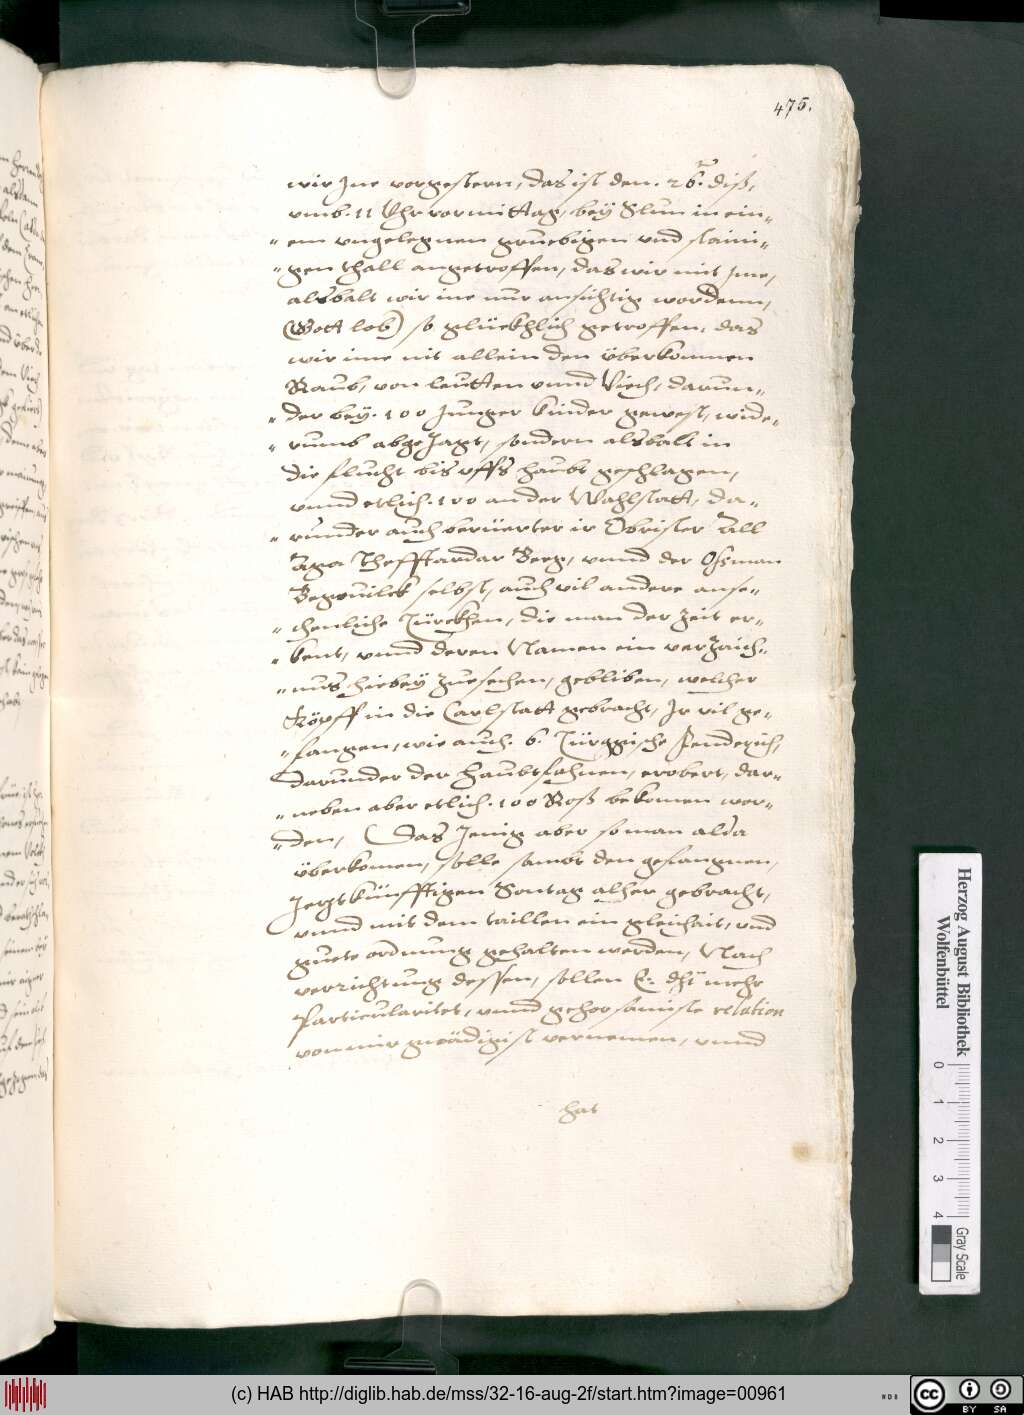 475.
wir Jne vorgestern, das ist den. 26.ten diß,
vmb. 11 Vhr vormittag, bey Slun in ein„
„ em vngelegnen gruebigen vnd staini„
„ gen thall angetroffen, das wir mit jme,
alsbalt wir ine nur ansichtig wordenn,
(Gott lob) so glückhlich getroffen, das
wir ime nit allein den überkomnen
Raub, von leutten vnnd Viech, darun„
„ der bey. 100 Junger kinder gewest, wide„
„ rumb abgeJagt, sondern alsbalt in
die flucht bis uffs haubt geschlagen,
vnnd etlich. 100 an der Wahlstatt, da„
„ runder auch berüerter ir Obrister All
Aga Thefftardar Beeg, vnnd der Oßman
Begouilck selbst, auch vil andere anse„
„ chenliche Türckhen, die man der zeit er„
„ kent, vnnd deren Namen ein verzaich„
„ nus hiebey zuesehen, gebliben, welcher
Köpff in die Carlstatt gebracht, Jr vil ge„
„ fangen, wie auch. 6. Türggische Fenderich,
darunder der haubtfahnen, erobert, dar„
„ neben aber etlich. 100 Roß bekomen wor„
„ den, Das Jenig aber so man alda
überkomen, solle sambt den gefangnen,
Jerzt künfftigen Sontag alher gebracht,
vnnd mit dem taillen ein gleichait, vnd
guete ordnung gehalten werden, Nach
verrichtung dessen, sollen E: dht mehr
Particularitet, vnnd gehorsamiste relation
von mir gnädigist vernemen, vnnd
hat
Herzog August Bibliothek
Wolfenbüttel
0 1 2 3 4
Gray Scale
(c) HAB http://diglib.hab.de/mss/32-16-aug-2f/start.htm?image=00961
WDB
cc BY SA